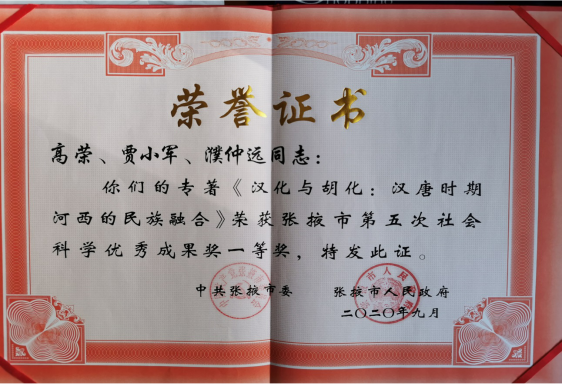 荣誉证书
高荣、贾小军、濮仲远同志：
你们的专著《汉化与胡化：汉唐时期
河西的民族融合》荣获张掖市第五次社会
科学优秀成果奖一等奖，特发此证。
中共张掖市委 张掖市人民政府
二〇二〇年九月